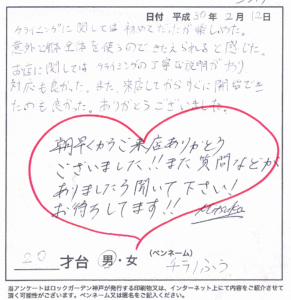 日付 平成30年2月12日
クライミングに関しては初めてだったが楽しかった。
意外と体全体を使うのできたえられると感じた。
お店に関しては クライミングの丁寧な説明があり
対応も良かった。また、来店してからすぐに開始でき
たのも良かった。ありがとうございました。
朝早くからご来店ありがとう
ございました!!また質問などが
ありましたら聞いて下さい!
お待ちしてます!!
20 才台 男・女 (ペンネーム)
チラノふう
当アンケートはロックガーデン神戸が発行する印刷物又は、インターネット上にて内容をご紹介させて
頂く可能性がございます。ペンネーム又は匿名をご記入ください。